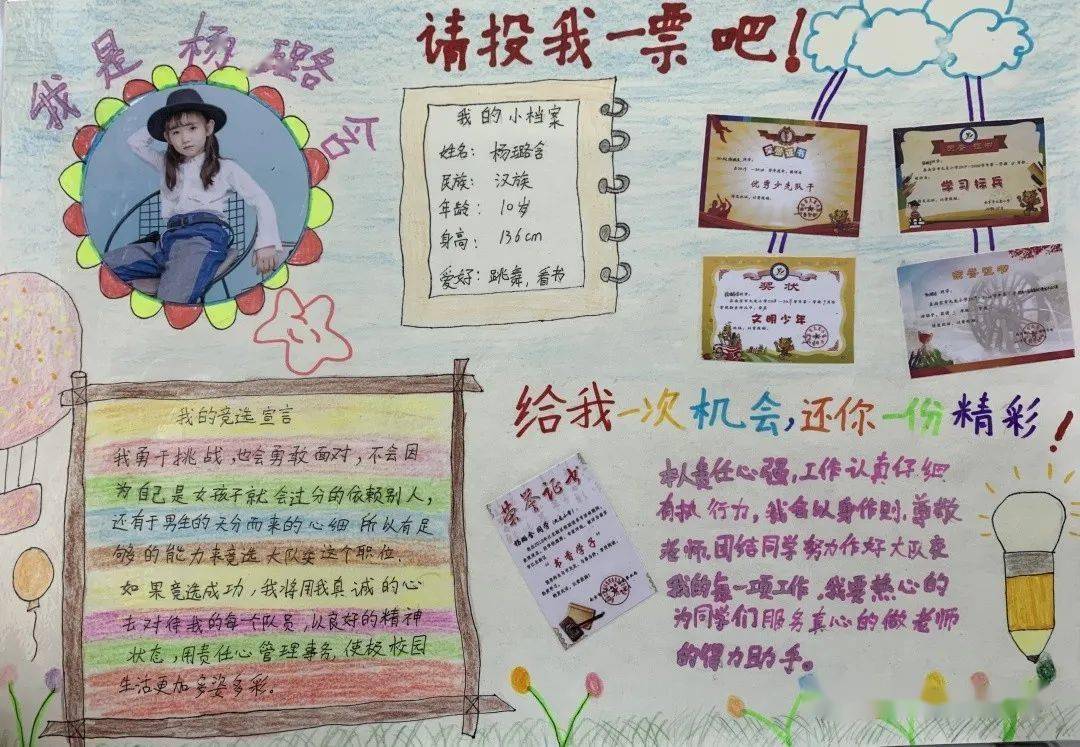 我是杨璐含
请投我一票吧！
我的小档案
姓名：杨璐含
民族：汉族
年龄：10岁
身高：136cm
爱好：跳舞，看书
荣誉证书
优秀少先队干
荣誉证书
学习标兵
奖状
文明少年
荣誉证书
我的竞选宣言
我勇于挑战，也会勇敢面对，不会因
为自己是女孩子就会过分的依赖别人，
还有于男生的天分而来的心细所以有足
够的能力来竞选大队委这个职位.
如果竞选成功，我将用我真诚的心
去对待我的每个队员，以良好的精神
状态，用责任心管理事务，使校校园
生活更加多姿多彩。
给我一次机会，还你一份精彩！
荣誉证书
“书香学子”
本人责任心强，工作认真仔细
有执行力，我会以身作则.尊敬
老师.团结同学努力作好大队委
我的每一项工作，我要热心的
为同学们服务真心的做老师
的得力助手。